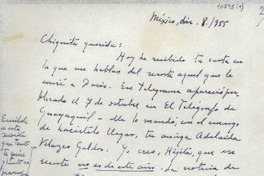 10798(1)
México, dic. 8/955
Chiquita querida:
Hoy he recibido tu carta en
la que me hablas del recorte aquel que le
envié a Doris. Ese Telegrama apareció pu-
blicado el 7 de octubre en El Telégrafo de
Guayaquil — Me lo mandó, con el encargo
de hacértelo llegar, tu amiga Adelaida
Velasco Galdos. Yo creo, Hijita, que ese
recorte no es de este año. La noticia de
Escríbele
a esta
que tanto
te quiere